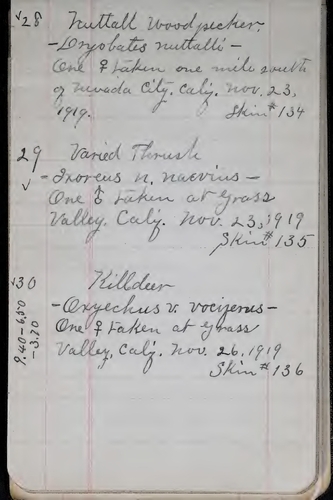 √28 Nuttall Woodpecker.
- Dryobates nuttalli -
One ♀ taken one mile south
of Nevada City, Calif. Nov. 23,
1919. Skin # 134
29 Varied Thrush
√ - Ixoreus n. naevius -
One ♀ taken at Grass
Valley, Calif. Nov. 23, 1919
Skin # 135
√30 Killdeer
- Oxyechus v. vociferus -
One ♀ taken at Grass
Valley, Calif. Nov. 26, 1919
Skin # 136
9.40-6.50
-3.20